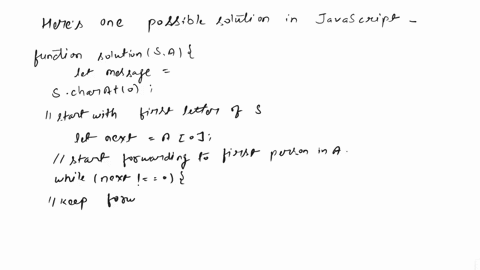 Here's one possible solution in JavaScript -
function solution(S.A) {
let message =
S.charAt(0) ;
// start with first letter of S
let next = A [0];
// start forwarding to first person in A.
while (next !== 0) {
// keep forw